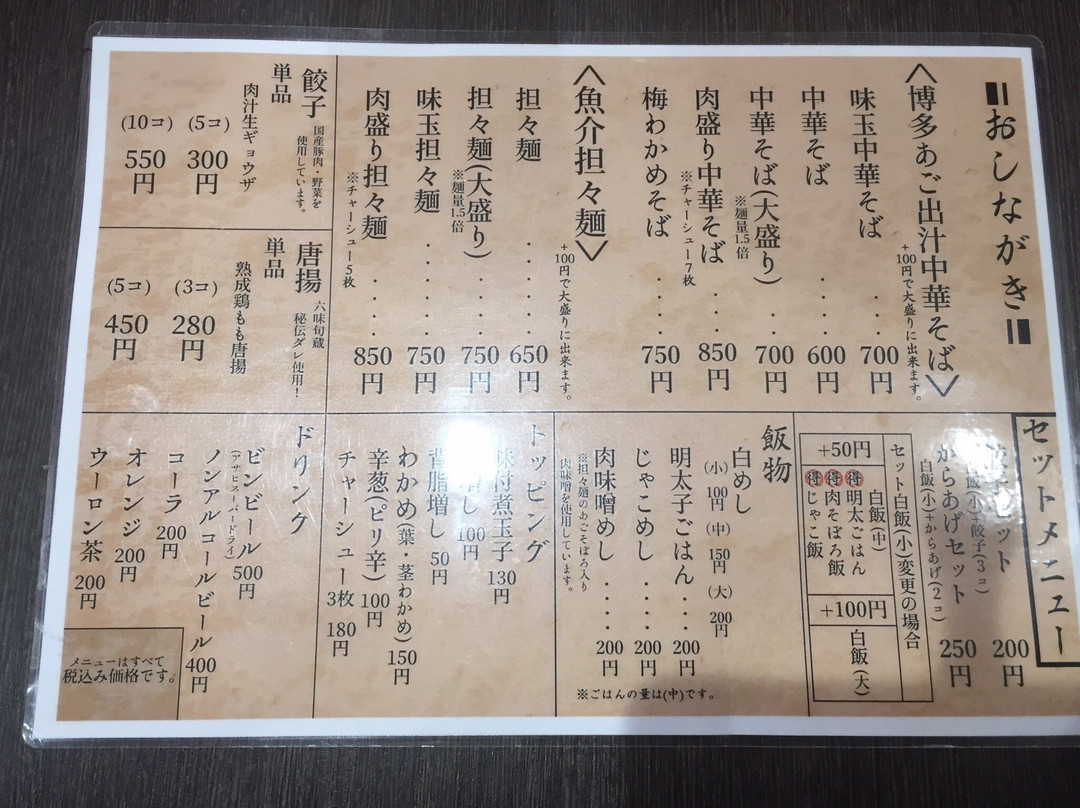 おしながき
〈博多あご出汁中華そば〉
+100円で大盛りに出来ます。
味玉中華そば・・700円
中華そば・・・600円
中華そば(大盛り)700円
※麺量1.5倍
肉盛り中華そば・・850円
※チャーシュー7枚
梅わかめそば・・・750円
〈魚介担々麺〉
+100円で大盛りに出来ます。
担々麺・・・・650円
担々麺(大盛り)・・750円
※麺量1.5倍
味玉担々麺・・・・750円
肉盛り担々麺・・・850円
※チャーシュー5枚
餃子
国産豚肉・野菜を
使用しています。
単品
肉汁生ギョウザ
(5コ)300円
(10コ)550円
唐揚
六味旬蔵
秘伝ダレ使用!
単品
熟成鶏もも唐揚
(3コ)280円
(5コ)450円
セットメニュー
セット 200円
(小)+餃子(3コ)
からあげセット 250円
白飯(小)+からあげ(2コ)
セット白飯(小)変更の場合
+50円
白飯(中)
得 明太ごはん
得 肉そぼろ飯
得 じゃこ飯
+100円
白飯(大)
飯物
白めし
(小)100円 (中)150円 (大)200円
明太子ごはん・・200円
じゃこめし・・・・200円
肉味噌めし・・・・200円
※担々麺のあごそぼろ入り
肉味噌を使用しています。
※ごはんの量は(中)です。
トッピング
味付煮玉子 130円
し 100円
背脂増し 50円
わかめ(葉・茎わかめ)150円
辛葱(ピリ辛)100円
チャーシュー3枚 180円
ドリンク
ビンビール 500円
(アサヒスーパードライ)
ノンアルコールビール 400円
コーラ 200円
オレンジ 200円
ウーロン茶 200円
メニューはすべて
税込み価格です。